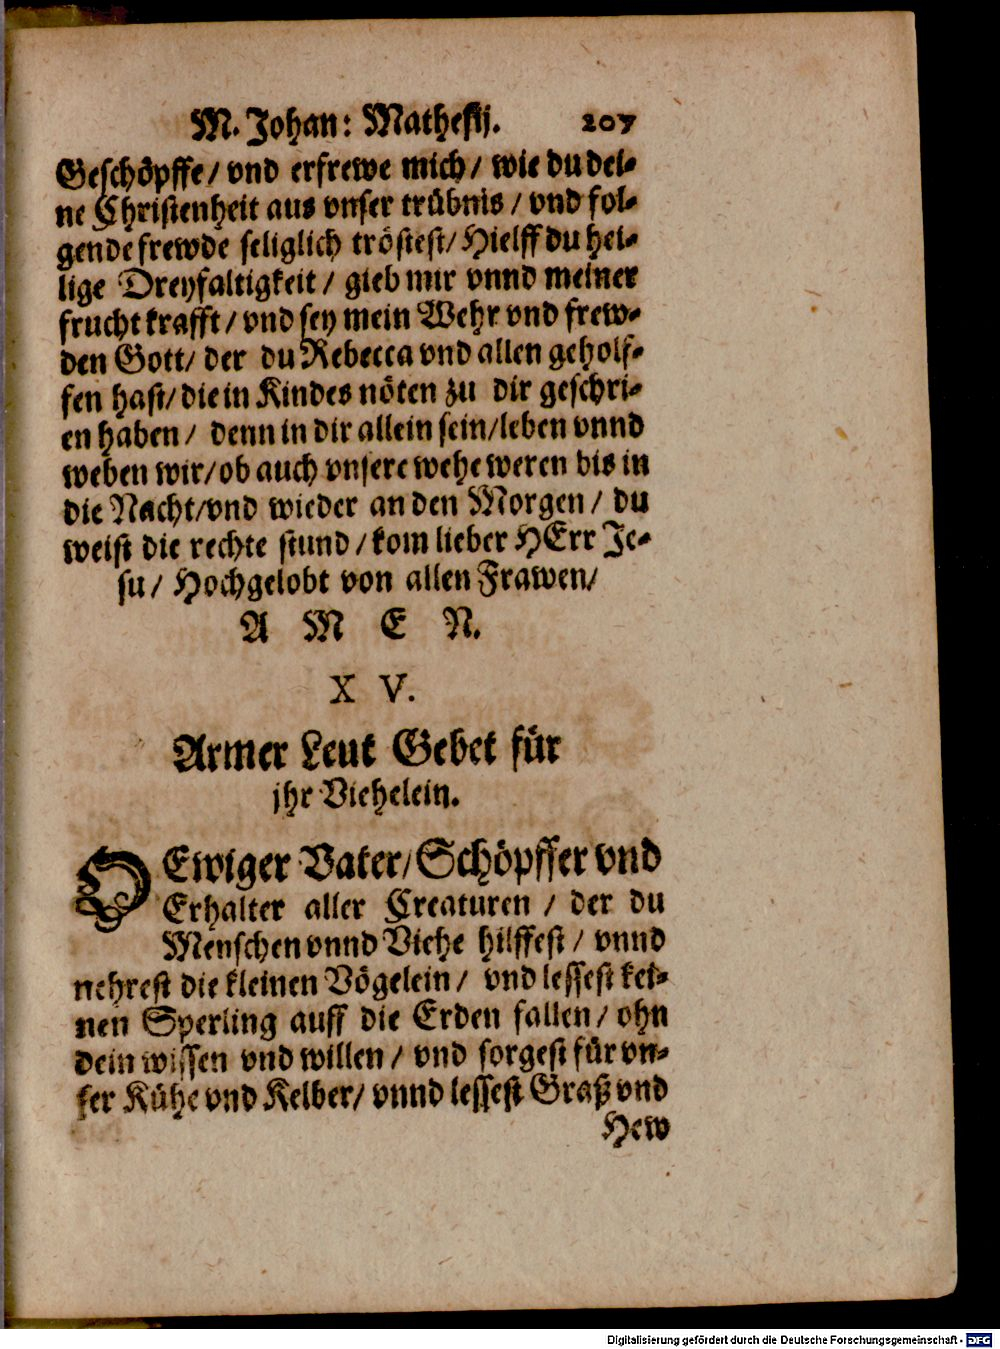 M. Johan: Mathesij. 207
Geschöpffe/ vnd erfrewe mich/ wie du dei-
ne Christenheit aus vnser trübnis/ vnd fol-
gende frewde seliglich tröstest/ Hielff du hei-
lige Dreyfaltigkeit/ gieb mir vnnd meiner
frucht krafft/ vnd sey mein Wehr vnd frew-
den Gott/ der du Rebecca vnd allen geholf-
fen hast/ die in Kindes nöten zu dir geschri-
en haben/ denn in dir allein sein/leben vnnd
weben wir/ ob auch vnsere wehe weren bis in
die Nacht/vnd wieder an den Morgen/ du
weist die rechte stund/ kom lieber HErr Je-
su/ Hochgelobt von allen Frawen/
A M E N.
X V.
Armer Leut Gebet für
jhr Viehelein.
O Ewiger Vater/ Schöpffer vnd
Erhalter aller Creaturen/ der du
Menschen vnnd Viehe hilffest/ vnnd
nehrest die kleinen Vögelein/ vnd lessest kei-
nen Sperling auff die Erden fallen/ ohn
dein wissen vnd willen/ vnd sorgest für vn-
ser Kühe vnd Kelber/ vnnd lessest Graß vnd
Hew
Digitalisierung gefördert durch die Deutsche Forschungsgemeinschaft - DFG